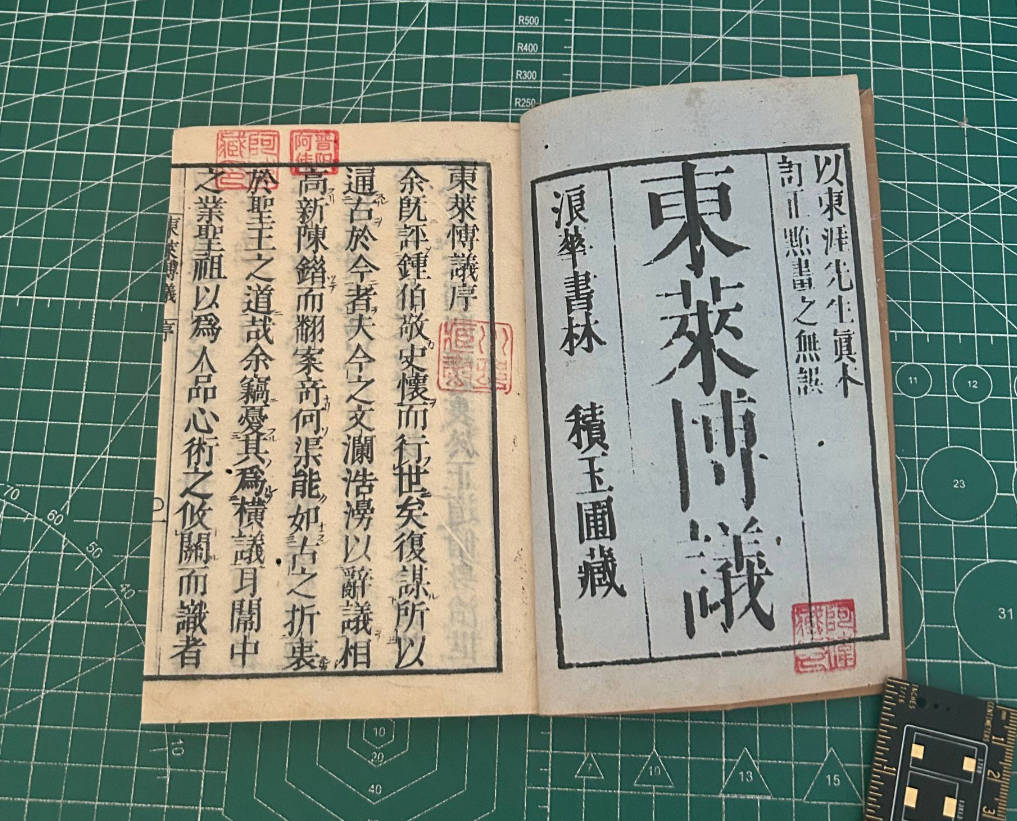 以東涯先生眞本
訂正點畫之無誤
東萊博議
浪華書林 積玉圃藏
東萊博議序
余旣評鍾伯敬史懷而行世矣復謀所以
通古於今者夫今之文瀾浩澇以辭議相
高新陳錯而翻案竒何渠能如古之折衷
於聖王之道哉余竊憂其爲橫議耳閒中
之業聖祖以爲人品心術之攸關而識者
東萊博議 序
R500
R400
R300
R250
11
12
23
31
70
60
50
40
10
10
20
40
7
10
13
15
INCHES
CENTIMETER
1
2
3